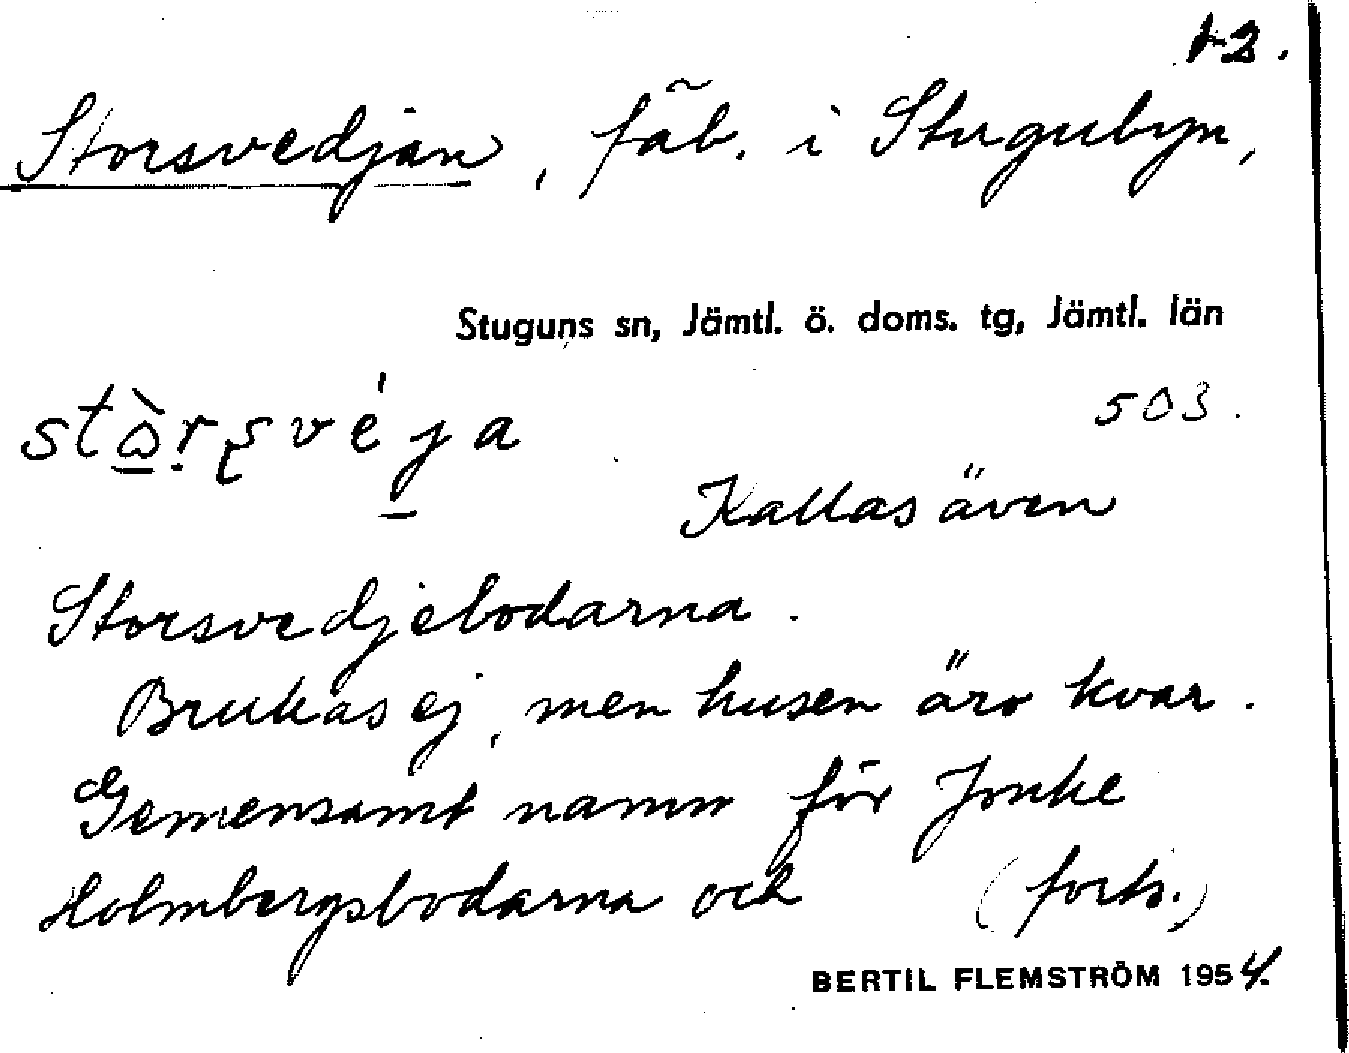 12.
Storsvedjan, fäb. i Stugubyn,
Stuguns sn, Jämtl. ö. doms. tg, Jämtl. län
503.
Kallas även
Storsvedjebodarna.
Brukas ej, men husen äro kvar.
Gemensamt namn för Jonke
Holmbergsbodarna och (forts.)
BERTIL FLEMSTRÖM 1954.